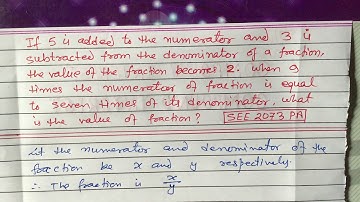 If 5 is added to the numerator and 3 is
subtracted from the denominator of a fraction,
the value of the fraction becomes 2. When 9
times the numerator of fraction is equal
to seven times of its denominator, what
is the value of fraction? SEE 2073 PA
let the numerator and denominator of the
fraction be x and y respectively.
∴ The fraction is x/y